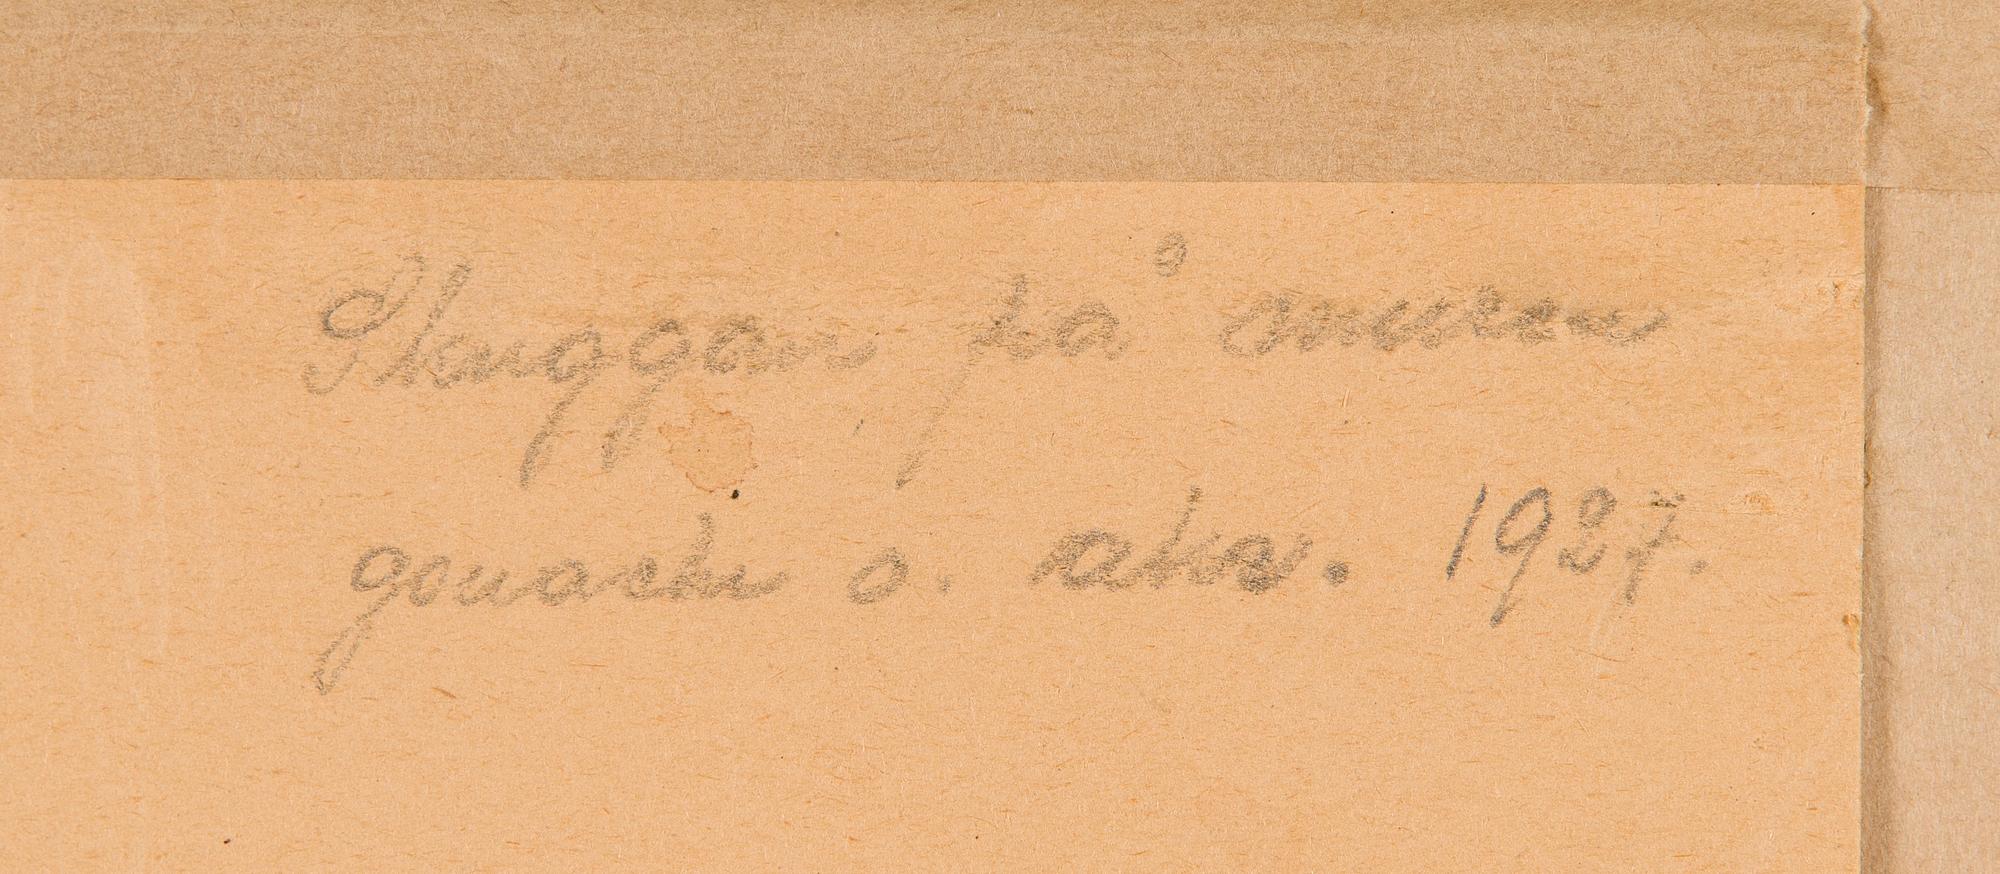 Skuggan på muren
gouache o. akv. 1927.